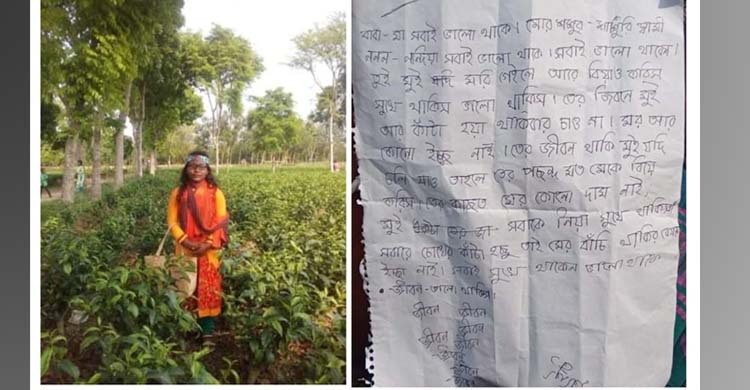 বাবা-মা সবাই ভালো থাকো। মোর শশুর-শাশুরি স্বামী
ননদ-নন্দিয়া সবাই ভালো থাক। সবাই ভালো থাকেন।
তুই মুই যদি মরি গেইলে আরে বিয়াও করিস
সুখে থাকিস ভালো থাকিস। তোর জিবনে মুই
আর কাঁটা হয়া থাকিবার চাও না। মোর আর
কোনো ইচ্ছু নাই। তোর জীবন থাকি মুই যদি
চলি যাও তাহলে তোর পছন্দ মত মেকে বিয়ে
করিস। তোর কাছত মোর কোনো দাম নাই,
মুই তোর সবাকে নিয়া সুখে থাকিস
সবারে চোখের কাঁটা হছু তাই মোর বাঁচি থাকির কোনো
ইচ্ছা নাই। সবাই সুখে থাকেন ভালো থাকেন
- জীবন-ভালো থাকিস।
জীবন জীবন
জীবন
জীবন জীবন
জীবন
জীবন
জীবন